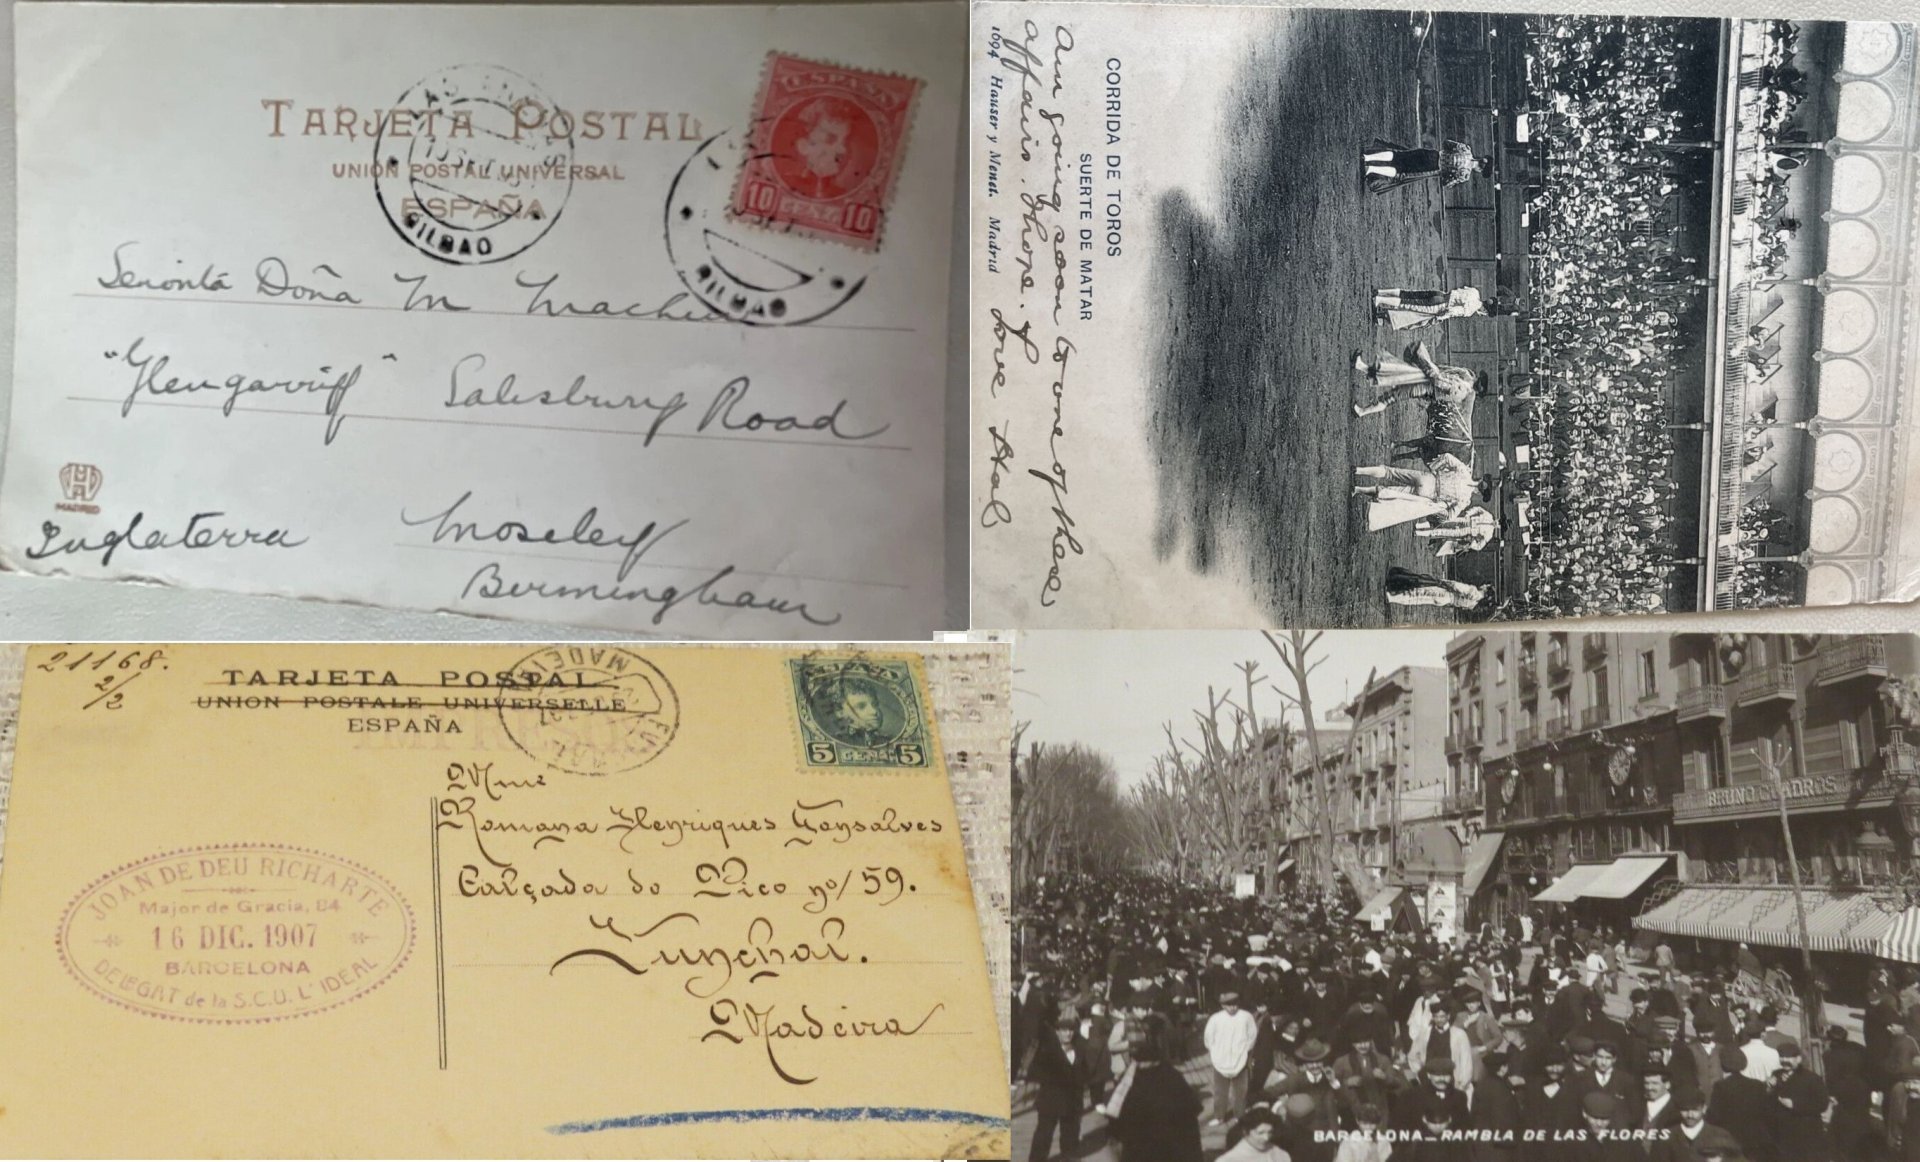 TARJETA POSTAL
UNIÓN POSTAL UNIVERSAL
ESPAÑA
BILBAO
BILBAO
ESPAÑA
10 CENT 10
Senorita Doña M
"Glengarriff" Salisbury Road
MADRID
Inglaterra Moseley
Birmingham
CORRIDA DE TOROS
SUERTE DE MATAR
Am going soon to one of these
affairs. I hope. Love Hal
1694 Hauser y Menet. Madrid
21168.
2/2
TARJETA POSTAL
UNION POSTALE UNIVERSELLE
ESPAÑA
MADEIRA
5 CENT 5
Mme
Romana Henriques Gonsalves
Calçada do Pico no/ 59.
Funchal.
Madeira
JOAN DE DEU RICHARTE
Major de Gracia, 84
16 DIC. 1907
BARCELONA
DELEGAT de la S.C.U. L'IDEAL
BRUNO CUADROS
BARCELONA_RAMBLA DE LAS FLORES